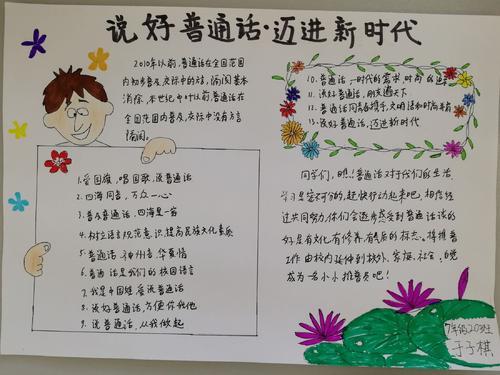 说好普通话·迈进新时代
2010年以前,普通话在全国范围
内初步普及,交际中的方言隔阂基本
消除,本世纪中叶以前,普通话在
全国范围内普及,交际中没有方言
隔阂。
1.爱国旗,唱国歌,说普通话
2.四海同音,万众一心
3.普及普通话,四海是一家
4.树立语言规范意识,提高民族文化素质
5.普通话,神州音,华夏情
6.普通话是我们的校园语言
7.我是中国娃,爱说普通话
8.说好普通话,方便你我他
9.说普通话,从我做起
10.普通话,时代的需求,时尚的追求
11.说好普通话,朋友遍天下
12.普通话同青春携手,文明语和时尚并肩
13.说好普通话,迈进新时代
同学们,瞧!普通话对于我们的生活
学习是密不可分的,赶快行动起来吧,相信经
过共同努力你们会逐步感受到普通话说的
好是有文化,有修养,有素质的标志。将推普
工作由校内延伸到校外、家庭、社会,自觉
成为一名小小推普员吧!
7年级20班
于子棋